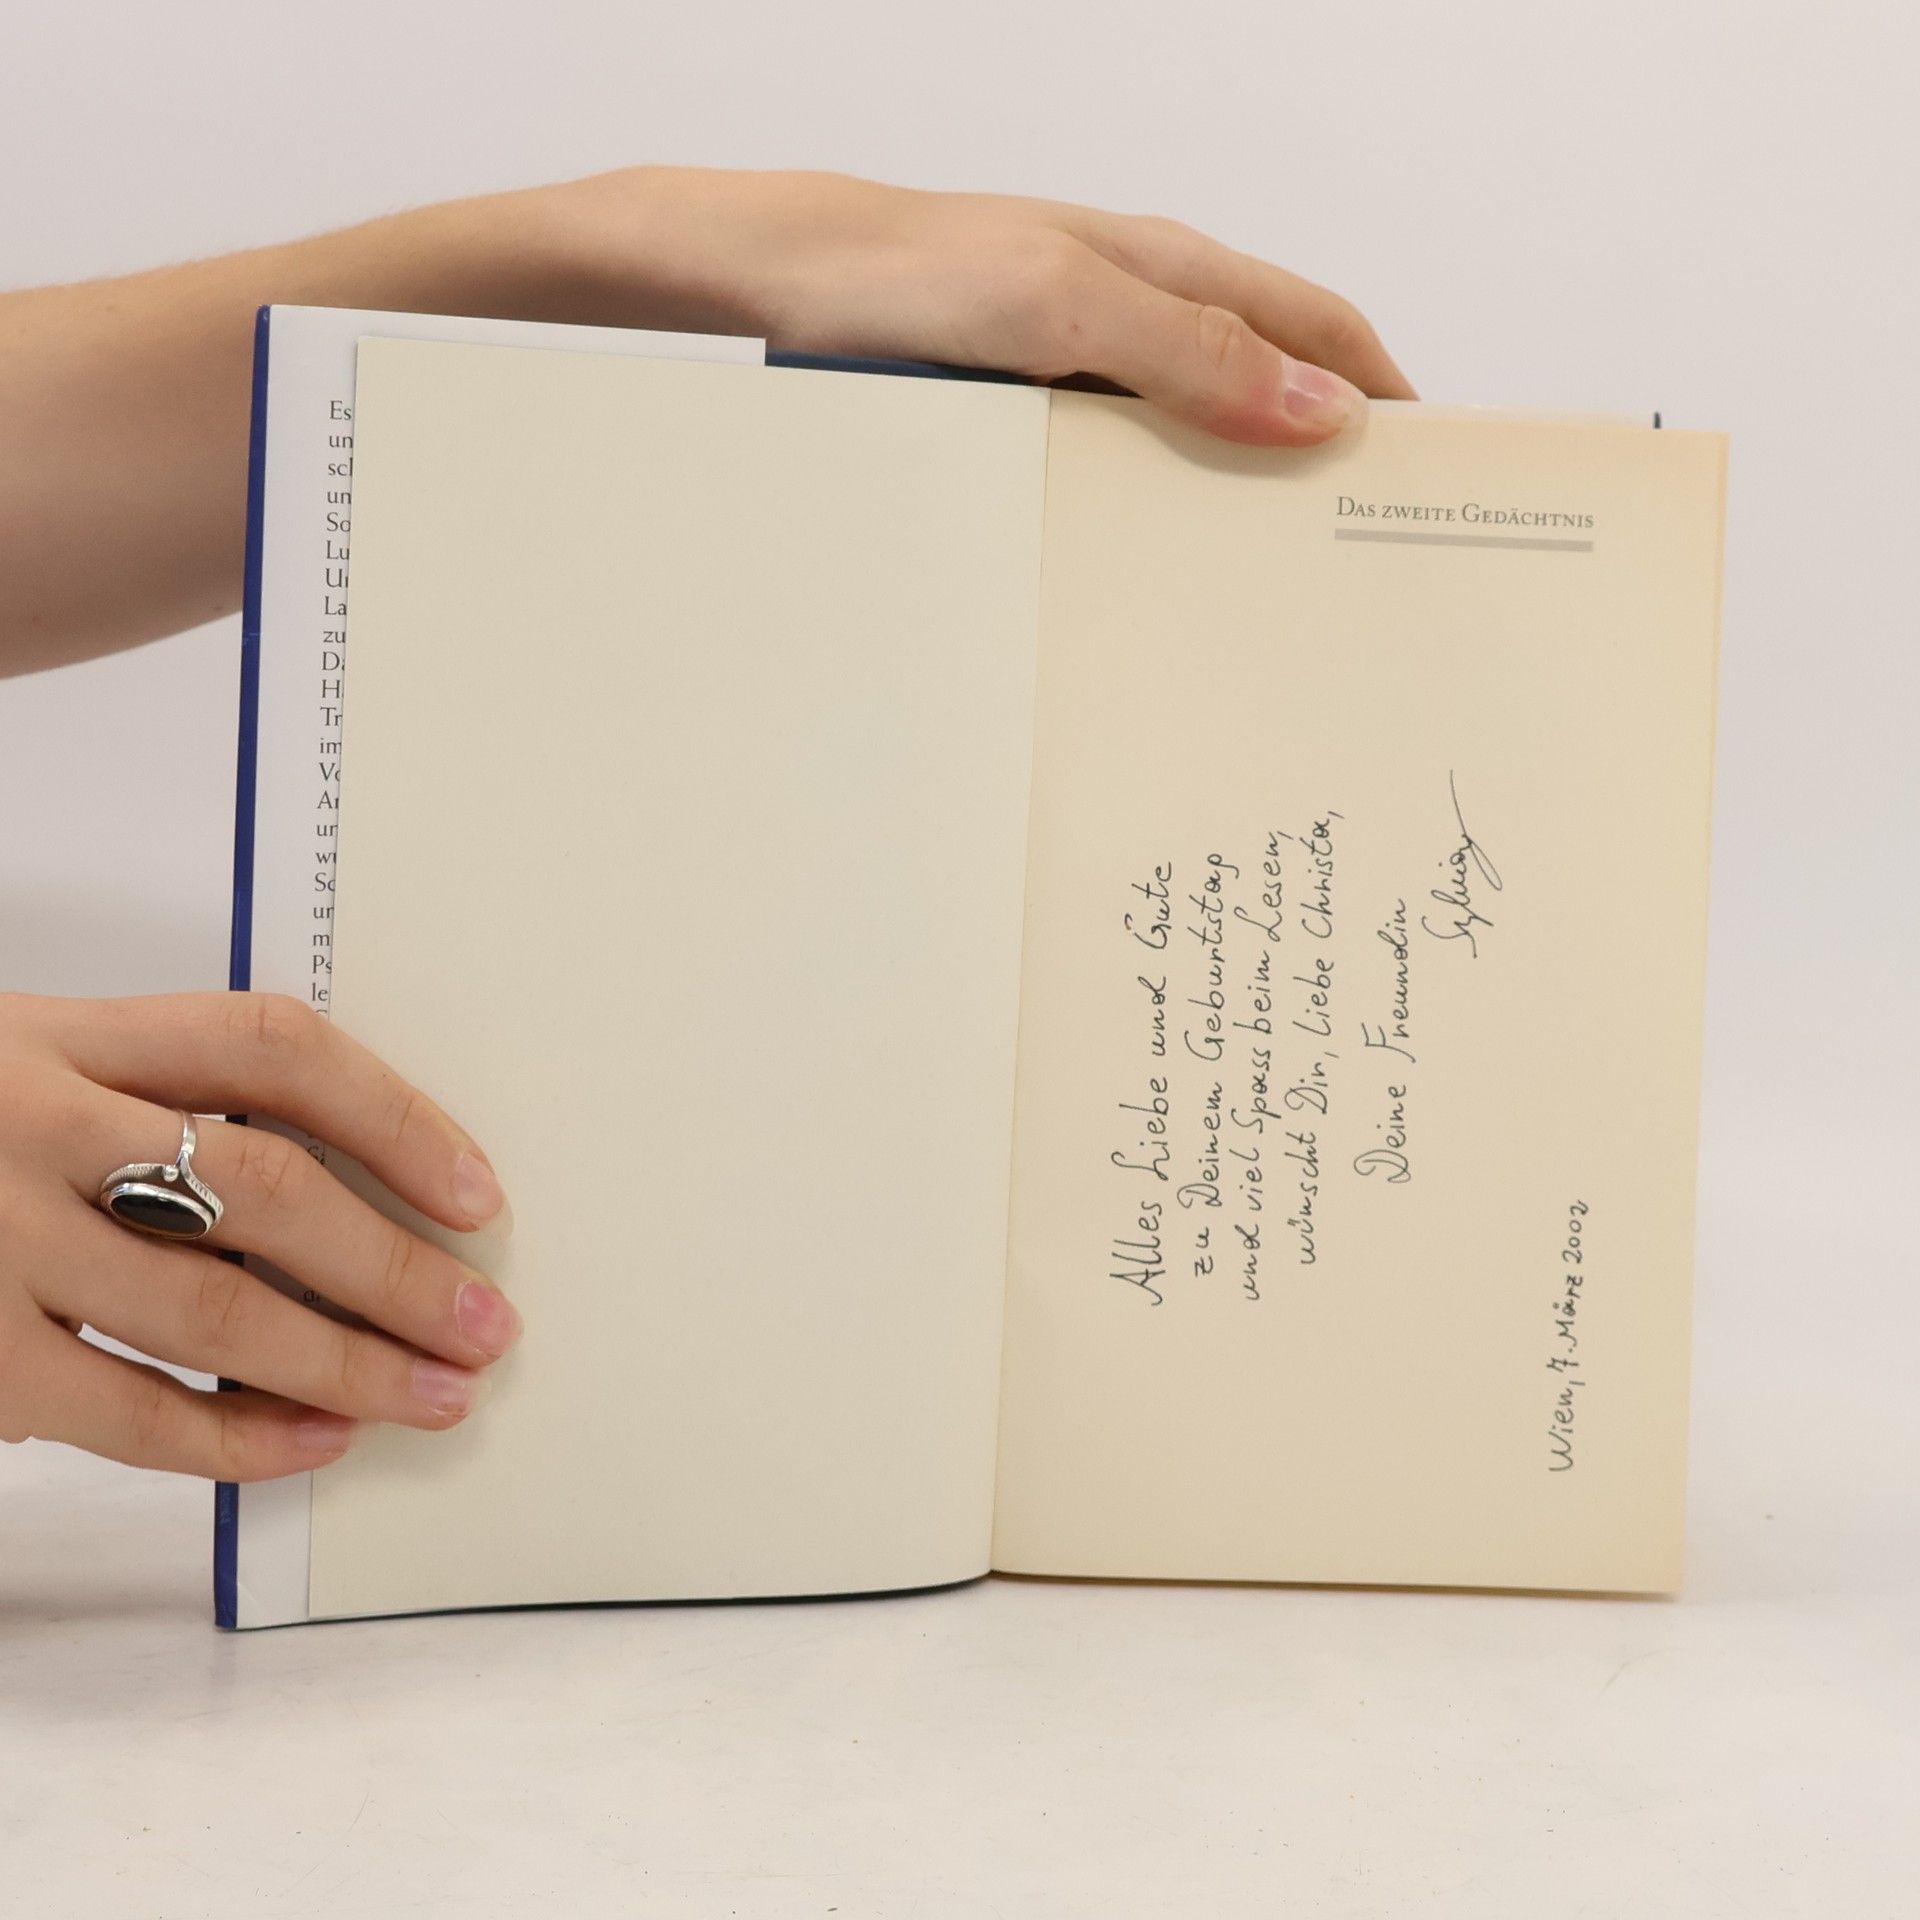 Es
un
sch
un
So
Lu
La
zu
Tr
im
Vo
An
un
Sc
un
m
Ps
le
DAS ZWEITE GEDÄCHTNIS
Alles Liebe und Gute
zu Deinem Geburtstag
und viel Spass beim Lesen,
wünscht Dir, liebe Christa,
Deine Freundin
Sylvia
Wien, 7. März 2002